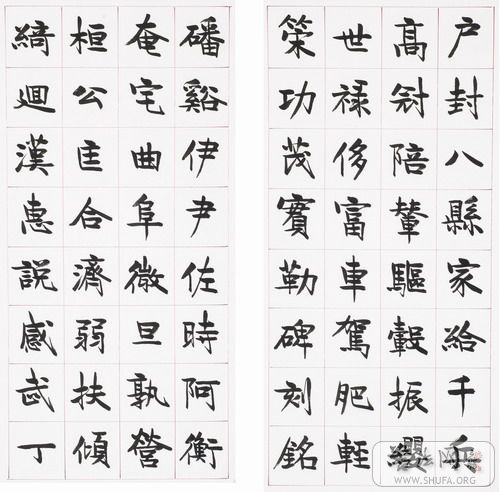 户封八縣家給千兵
高冠陪輦驅轂振纓
世祿侈富車駕肥輕
策功茂實勒碑刻銘
磻谿伊尹佐時阿衡
奄宅曲阜微旦孰營
桓公匡合濟弱扶傾
綺迴漢惠說感武丁
WWW.SHUFA.ORG